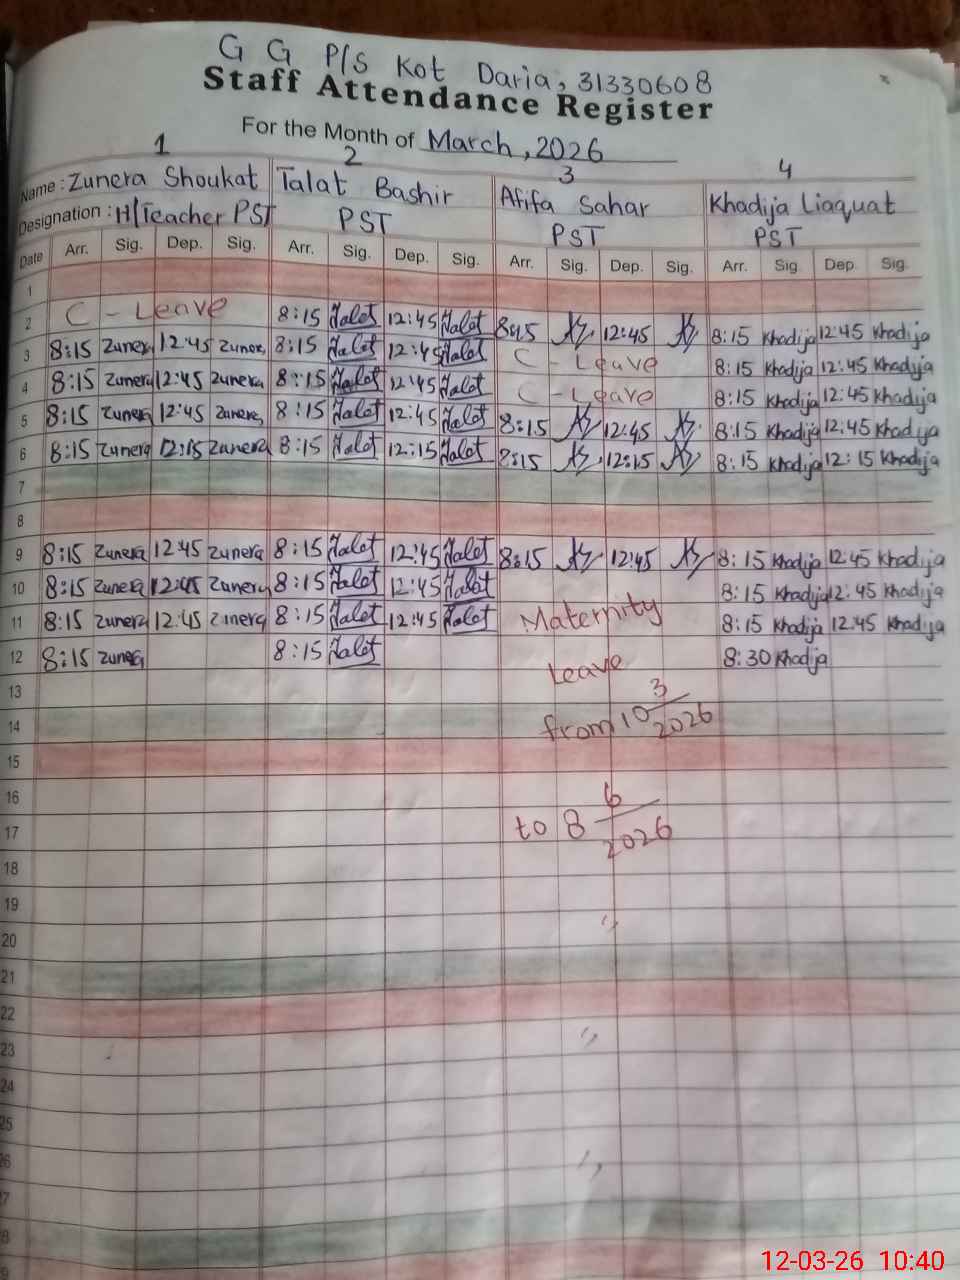 G G P/S Kot Daria, 31330608
Staff Attendance Register
For the Month of March, 2026
1 2 3 4
Name: Zunera Shoukat Talat Bashir Afifa Sahar Khadija Liaquat
Designation: H/Teacher PST PST PST PST
Date Arr. Sig. Dep. Sig. Arr. Sig. Dep. Sig. Arr. Sig. Dep. Sig. Arr. Sig. Dep. Sig.
1
2 C - Leave 8:15 Talat 12:45 Talat 8:15 12:45 8:15 Khadija 12:45 Khadija
3 8:15 Zunera 12:45 Zunera 8:15 Talat 12:45 Talat C - Leave 8:15 Khadija 12:45 Khadija
4 8:15 Zunera 12:45 Zunera 8:15 Talat 12:45 Talat C - Leave 8:15 Khadija 12:45 Khadija
5 8:15 Zunera 12:45 Zunera 8:15 Talat 12:45 Talat 8:15 12:45 8:15 Khadija 12:45 Khadija
6 8:15 Zunera 12:15 Zunera 8:15 Talat 12:15 Talat 8:15 12:15 8:15 Khadija 12:15 Khadija
7
8
9 8:15 Zunera 12:45 Zunera 8:15 Talat 12:45 Talat 8:15 12:45 8:15 Khadija 12:45 Khadija
10 8:15 Zunera 12:45 Zunera 8:15 Talat 12:45 Talat 8:15 Khadija 12:45 Khadija
11 8:15 Zunera 12:45 Zunera 8:15 Talat 12:45 Talat Maternity 8:15 Khadija 12:45 Khadija
12 8:15 Zunera 8:15 Talat Leave 8:30 Khadija
13
14 from 10 3/2026
15
16
17 to 8 6/2026
18
19
20
21
22
23
24
25
26
27
28
12-03-26 10:40